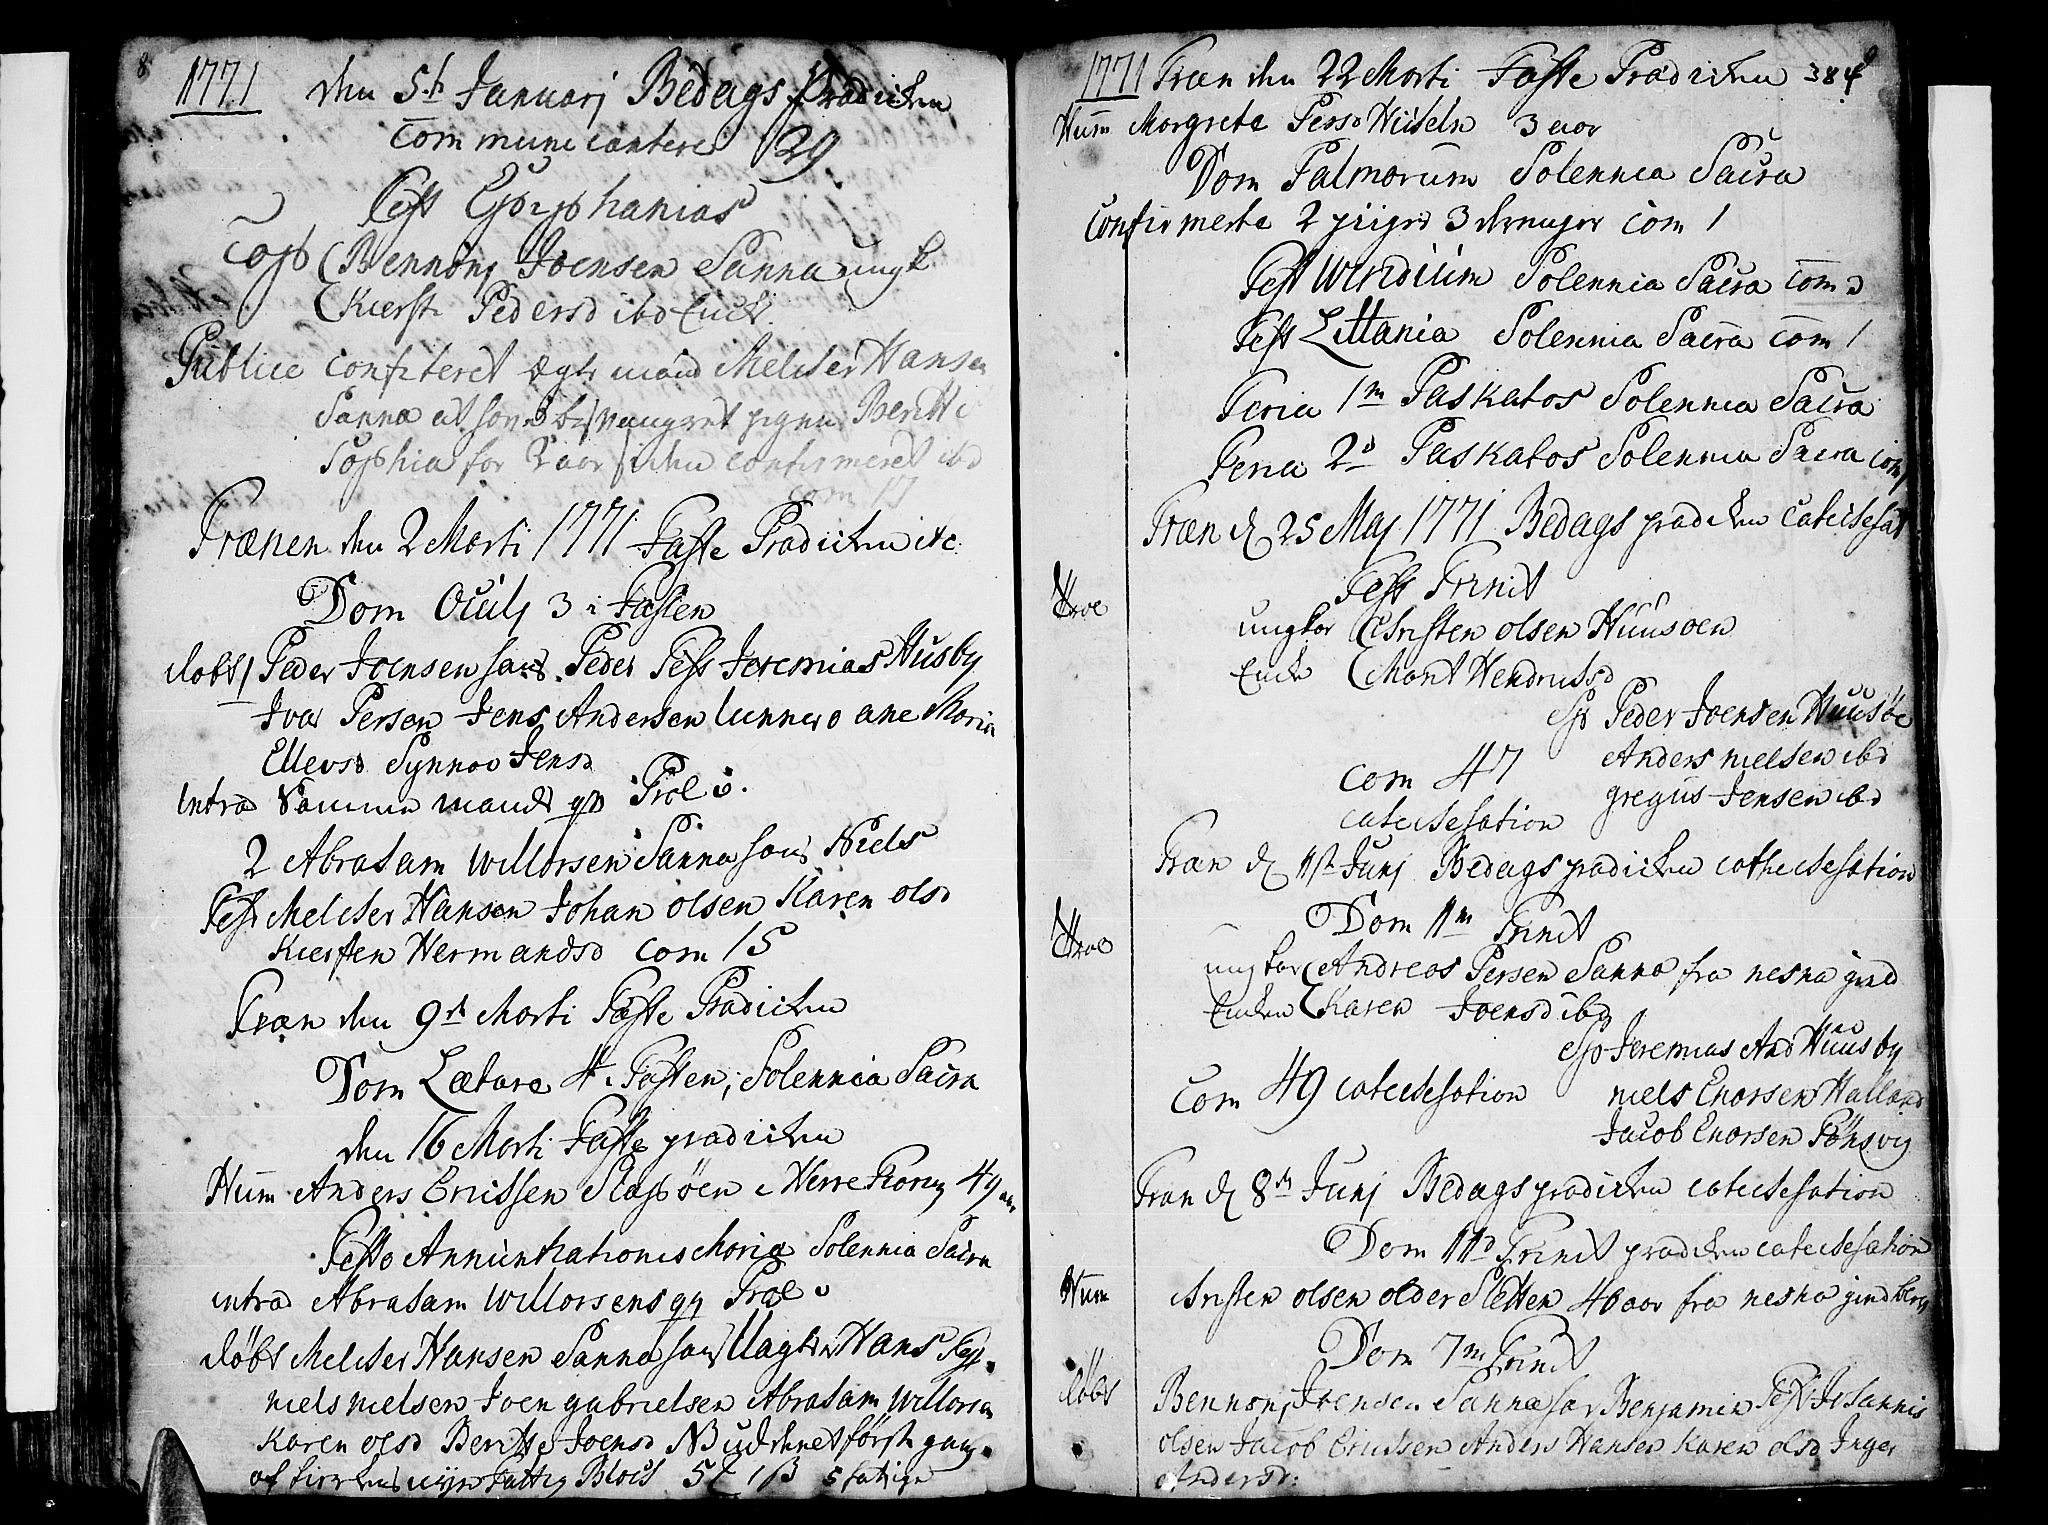 8
1771 den 5te Januarj Bedags Prædicken
Communicantere 29
Fest Epiphanias
Cop Bennonj Joensen Sanna ungk
Kierst Pedersd ibd Encke
Publice confiteret Ægte mand Melcher Hansen
Sanna at have besvangret pigen Beritte
Sophia for 2 aar siden confirmeret ibd
com 17
Trænen den 2 Marti 1771 Faste Prædicken etc
Dom Oculj 3 i Fasten
døbt 1 Peder Joensen barn Peder Test Jeremias Husby
Ivar Persen Jens Andersen Lunner ane Maria
Ellevsd Synnov Jensd
Introd Samme mands qv Præl v.
2 Abraham Willorsen Sanna barn Niels
Test Melcher Hansen Johan olsen Karen olsd
Kiersten Hermandsd com 15
Træn den 9de Marti Faste Prædicken
Dom Lætare 4 i Fasten, Solennia Sacra
den 16 Marti Faste prædicken
Hum Anders Erichsen Slapöen i Herre 49 aar
Festo Annuntiationis Mariæ Solennia Sacra
introd Abraham Willorsens qv Præl v
döbt Melcher Hansen Sanna barn Uægte Hans Test
niels nielsen Joen gabrielsen Abraham Willorsen
Karen olsd Beritte Joensd NB först gang
af Fattig Block
1771 Træn den 22 Marti Faste Prædicken 384
Hum Margrete Persd 3 aar
Dom Palmarum Solennia Sacra
Confirmerte 2 piiger 3 drenger com 1
Fest Viridium Solennia Sacra com 2
Fest Littania Solennia Sacra com 1
Feria 1m Paskatos Solennia Sacra
Feria 2d Paskatos Solennia Sacra com
Træn d 25 Maj 1771 Bedags prædicken catechesat
Fest Trinit
Troe ungkar Christen olsen Huusöen
Encke Marit Hendrichsd
Sp Peder Joensen Huusöe
com 47 Anders nielsen ibd
catechesation gregus Jensen ibd
Træn d 1ste Junj Bedags prædicken cathechesation
Dom 1m Trinit
Troe ungkar Andreas Persen Sanna fra nesna gield
Encken Karen Joensd ibd
Sp Jeremias And Huusby
Com 49 catechesation niels Enorsen Halland
Jacob Enorsen
Træn d 8de Junj Bedags prædicken catechesation
Dom 2d Trinit prædicken catechesation
Hum Christen olsen older Sletten 40 aar fra nesna gield
Dom 7m Trinit
döbt Bennonj Joensen Sanna barn Benjamin Test Johannis
olsen Jacob Erichsen Anders Hansen Karen olsd Inger
Andersd: